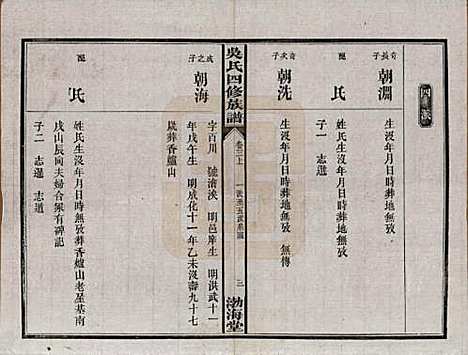 奇長子
朝淵
生沒年月日時葬地無攷
配
氏
姓氏生沒年月日時葬地無攷
子一
奇次子
朝洗
生沒年月日時葬地無攷 無傳
吳氏四修族譜
卷三上
三
渤海堂
成之子
朝海
字百川 號滄溪 明邑庠生 明洪武十一
年戊午生 明成化十一年乙未沒壽九十七
葬香爐山
配
氏
姓氏生沒年月日時無攷葬香爐山老屋基南
戌山辰向夫婦合冢有碑記
子二 志暹 志道